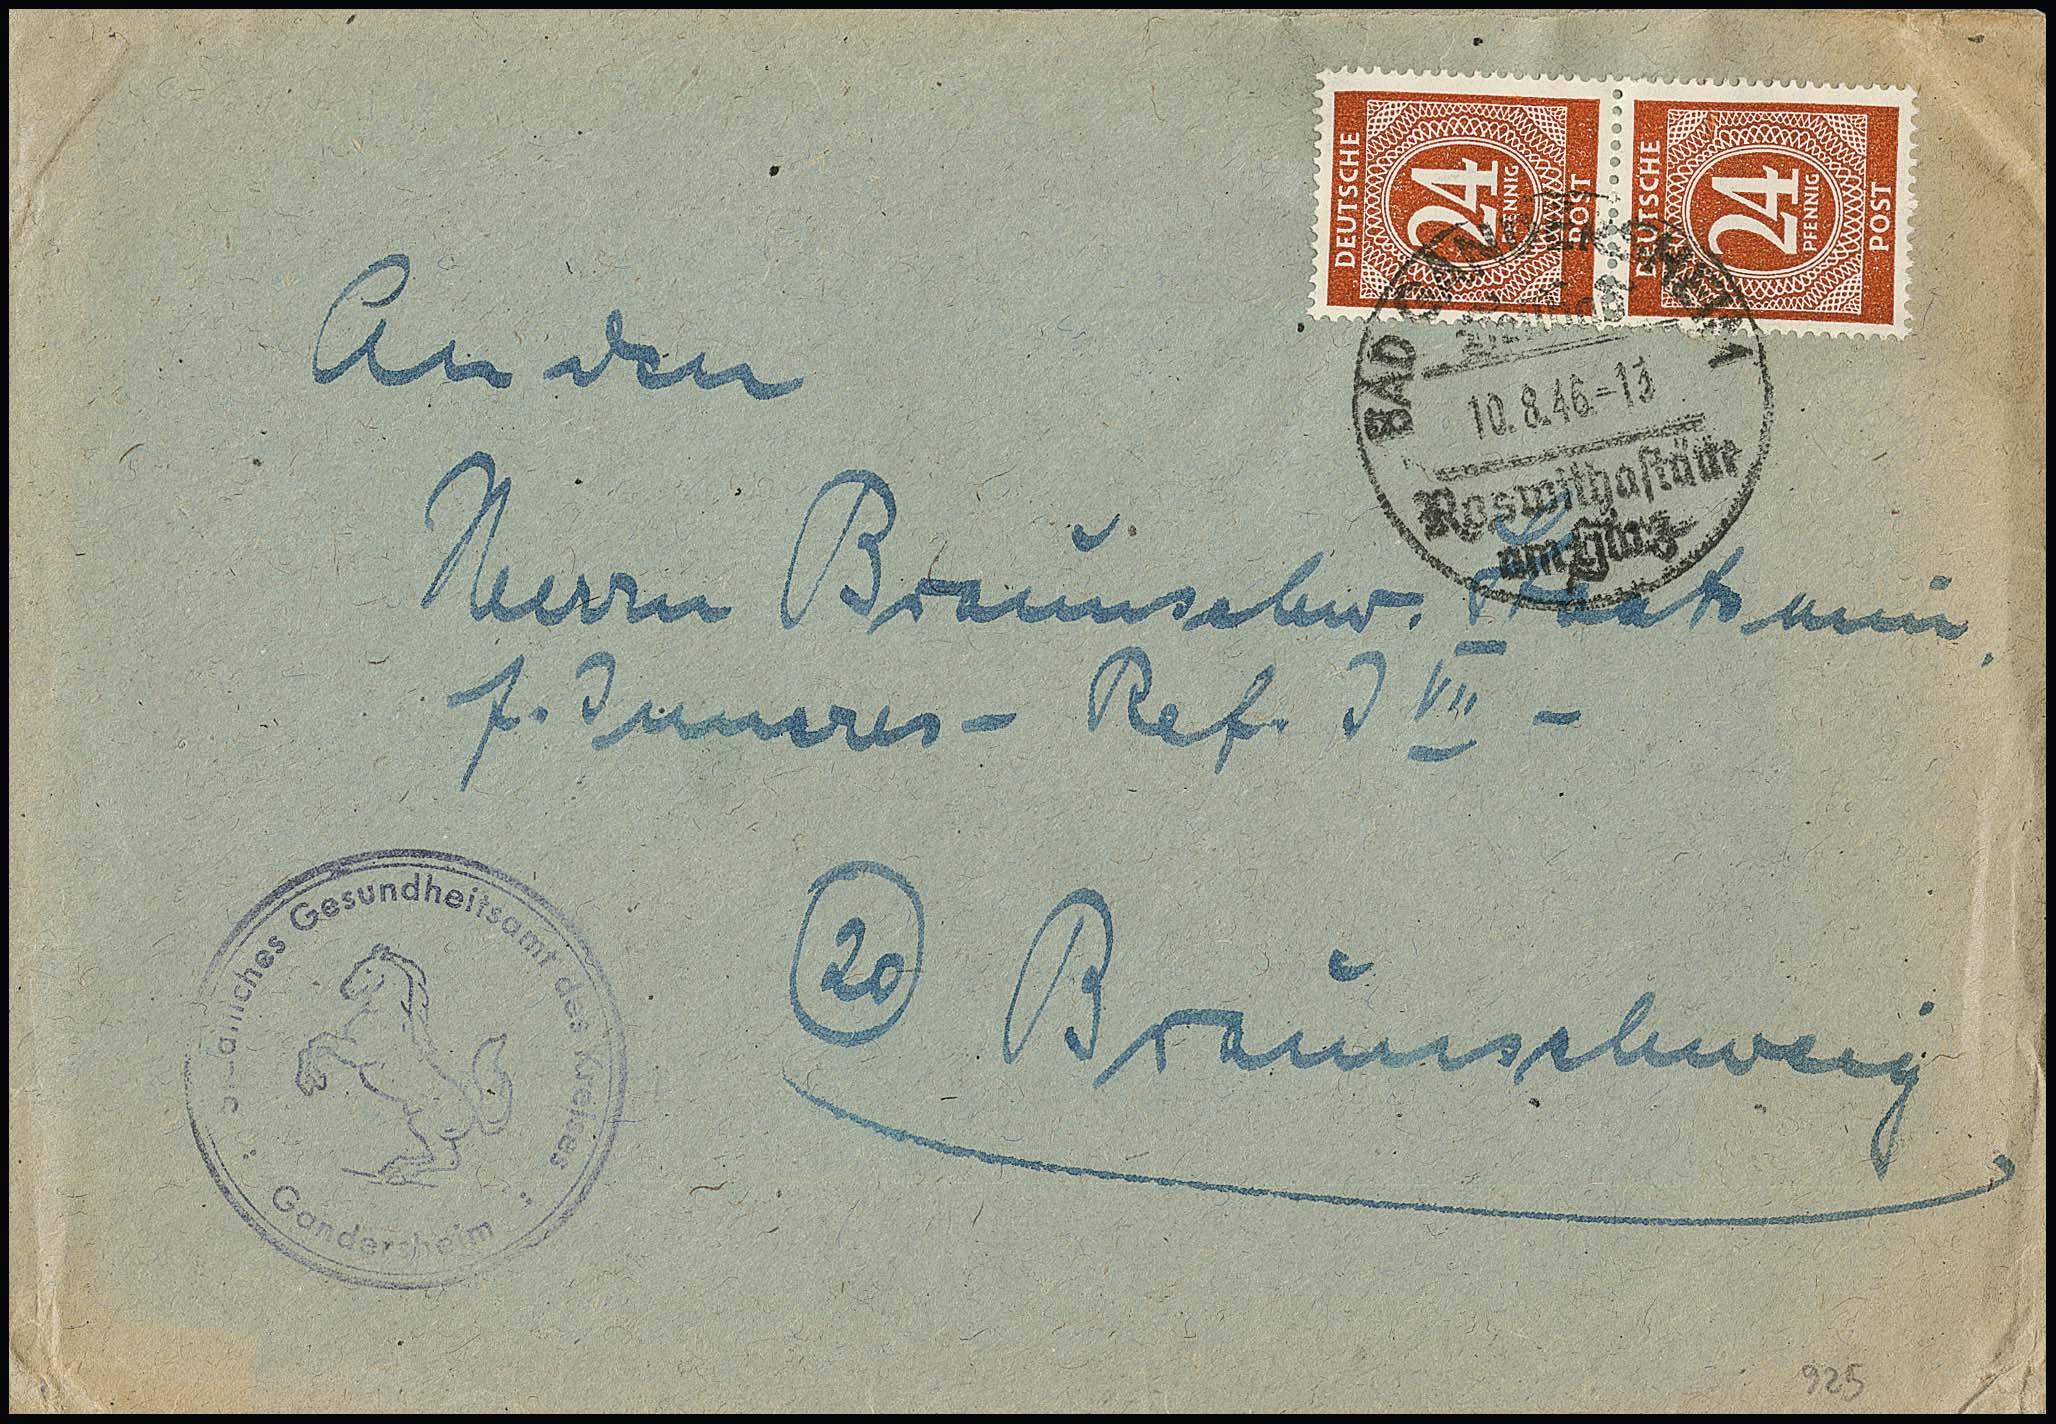 DEUTSCHE 24 PFENNIG POST
DEUTSCHE 24 PFENNIG POST
BAD GANDERSHEIM
10.8.46.-13
Roswithastätte
am Harz
An den
Herrn Braunschw. Staatsmin.
f. Inneres - Ref. I VII -
20 Braunschweig
Staatliches Gesundheitsamt des Kreises
Gandersheim
925